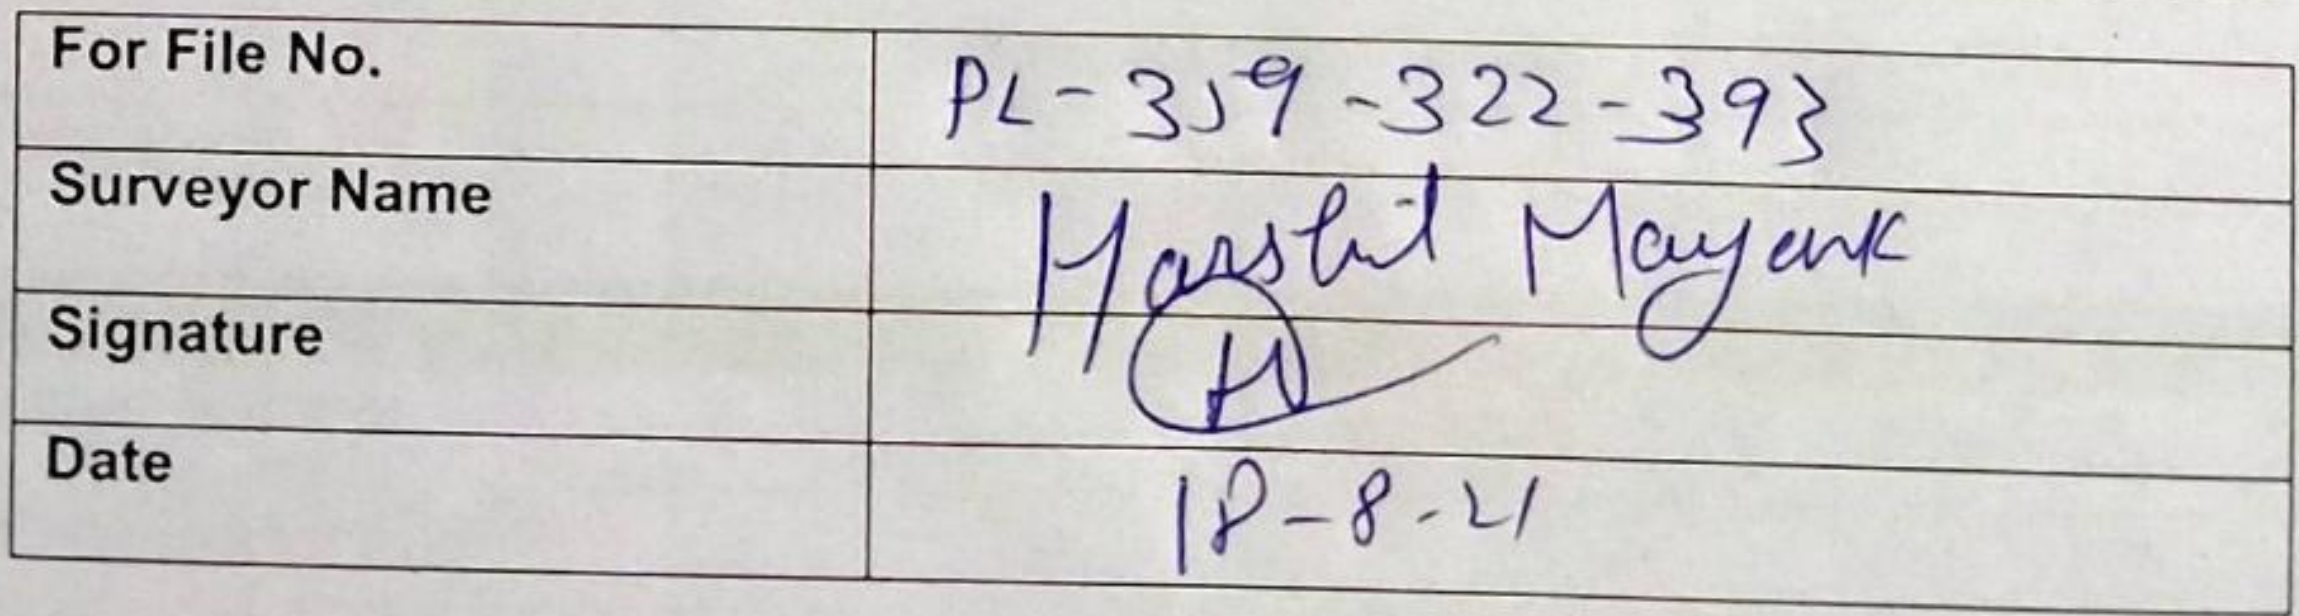 For File No. PL-359-322-393
Surveyor Name Harshit Mayank
Signature H
Date 18-8-21